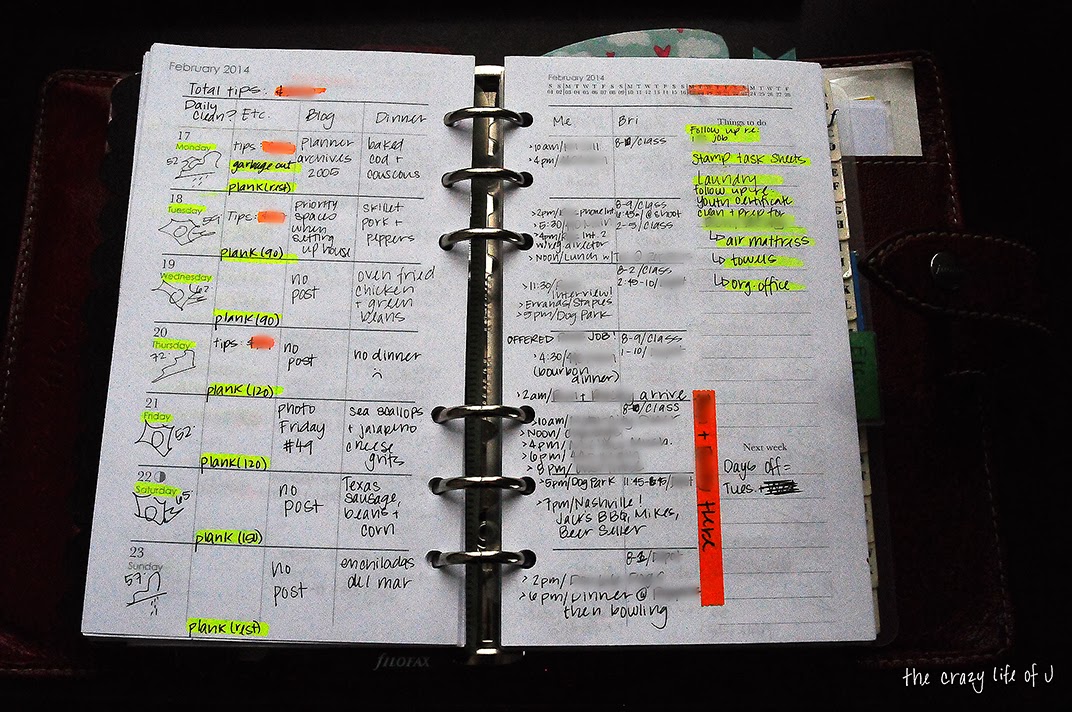 February 2014
Total tips:
Daily clean? Etc. Blog Dinner
17
Monday
52
tips:
garbage out
plank (rest)
planner
archives
2005
baked
cod +
couscous
18
Tuesday
59
Tips:
plank (90)
priority
spaces
when
setting
up house
skillet
pork +
peppers
19
Wednesday
62
plank (90)
no
post
oven fried
chicken
+ green
beans
20
Thursday
72
tips:
plank (120)
no
post
no dinner
21
Friday
52
plank (120)
photo
Friday
#49
sea scallops
+ jalapeno
cheese
grits
22
Saturday
65
plank (150)
no
post
Texas
sausage,
beans +
corn
23
Sunday
57
plank (rest)
no
post
enchiladas
del mar
FILOFAX
February 2014
S S M T W T F S S M T W T F S S M T W T F
Me Bri
>10am/
>4pm/
8-10/class
>2pm/ phone int
>5:30/
>4pm/ Int. 2
w/ reg director
>Noon/Lunch w/
8-9/class
@ shoot
2-5/class
>11:30/
interview!
>Errands/Staples
>5pm/Dog Park
8-2/class
2:45-10/
OFFERED JOB!
>4:30/
(bourbon
dinner)
8-9/class
1-10/
>2am/ + arrive
>10am/
>Noon/
>4pm/
>6pm/
>8pm/
/class
>5pm/Dog Park
>7pm/Nashville!
Jack's BBQ, Mikes,
Beer Seller
>2pm/
>6pm/Dinner @
then bowling
Things to do
Follow up re:
job
Stamp task sheets
Laundry
follow up re:
youth certificate
clean + prep for
↳ air mattrass
↳ towels
↳ org. office
+ Here
Next week
Days off =
Tues. +
the crazy life of J